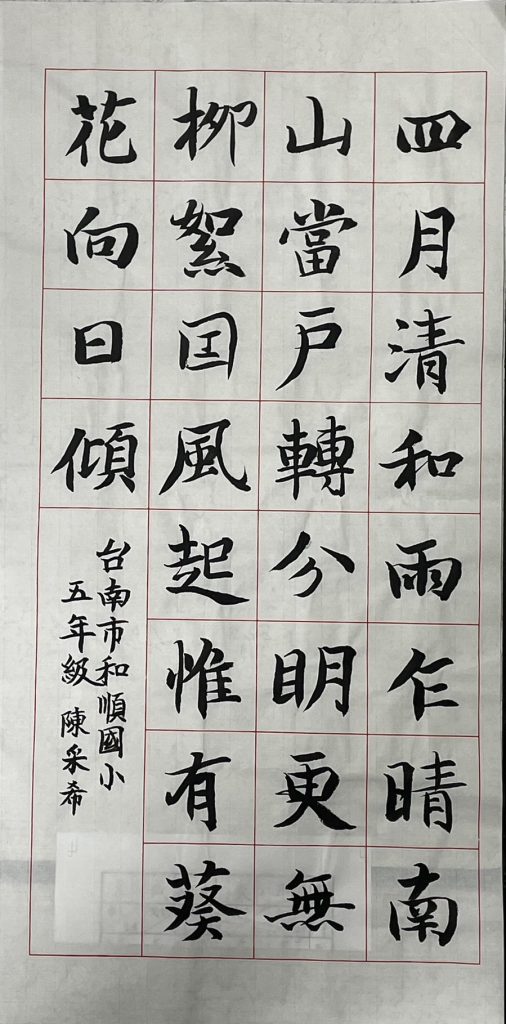 四月清和雨乍晴南
山當戶轉分明更無
柳絮因風起惟有葵
花向日傾
台南市和順國小
五年級 陳采希